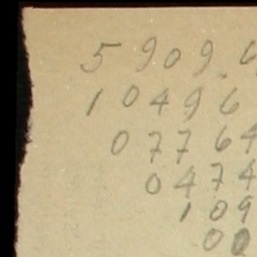 5 9 0 9 . 6
1 0 4 9 6
0 7 7 6 4
0 4 7 4
1 0 9
0 0